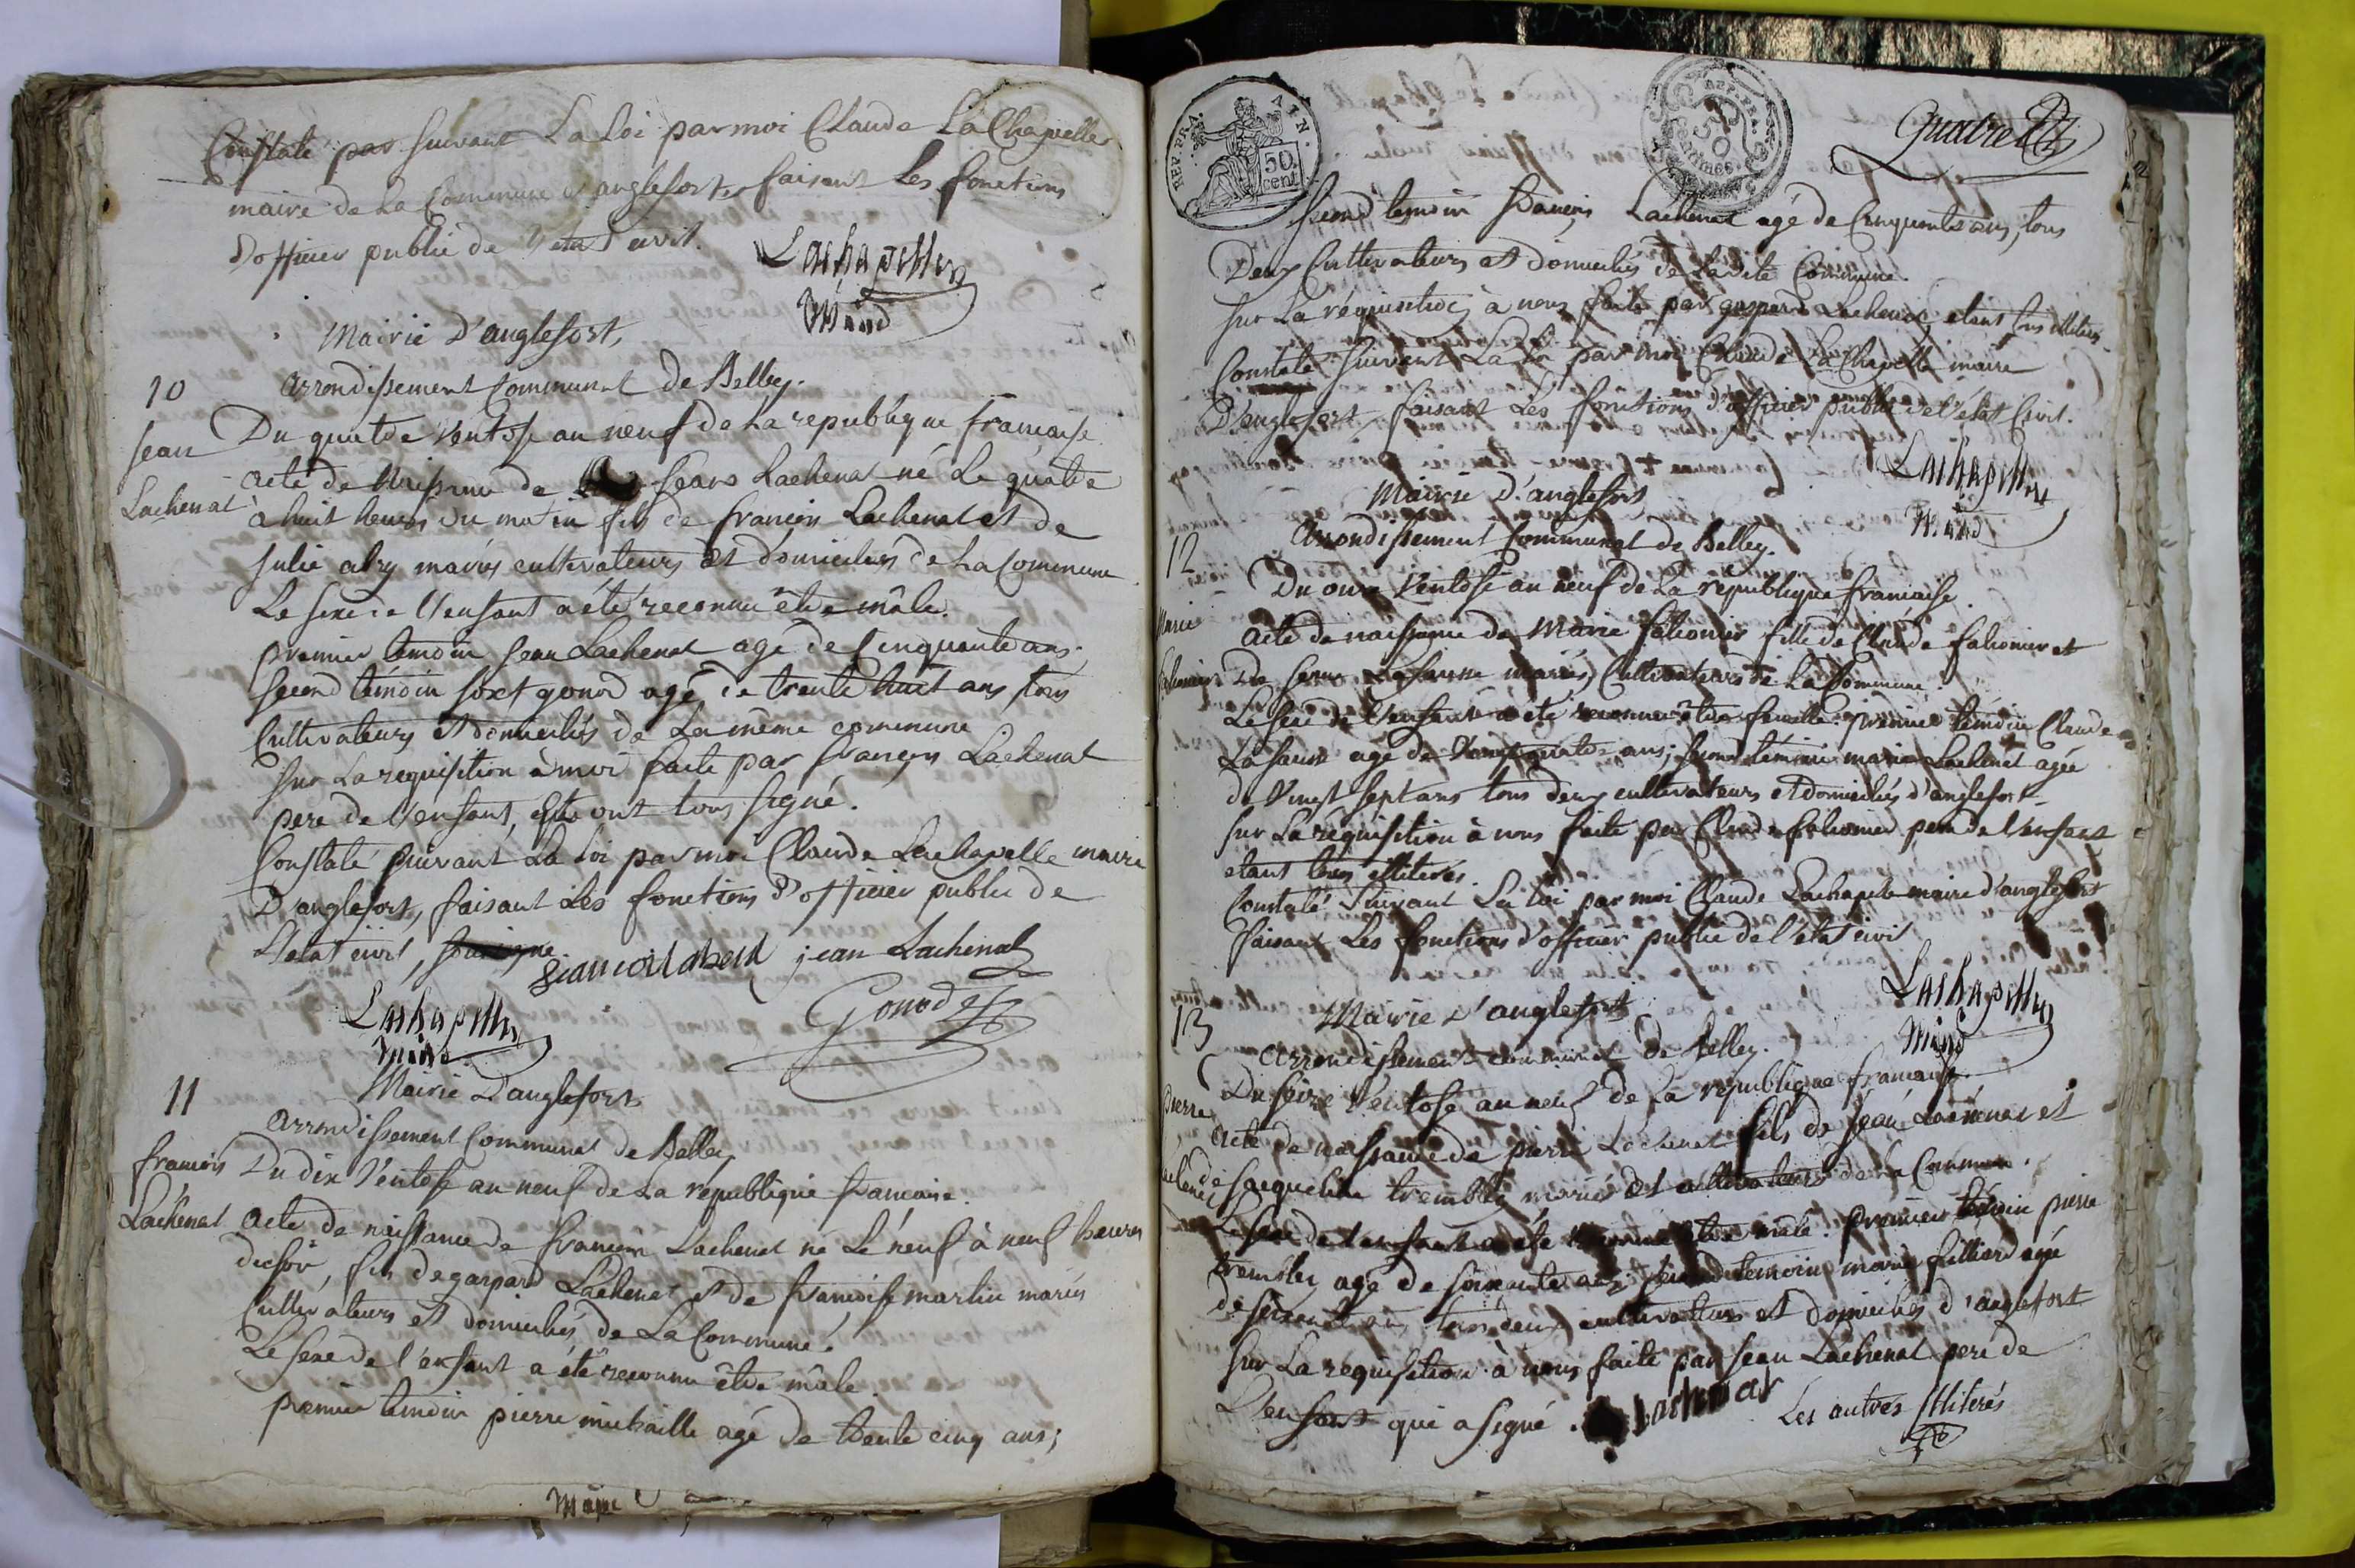 Constaté par suivant La Loi par moi Claude LaChapelle
maire de La Commune d'anglefort, faisant Les fonctions
d'officier public de l'etat civil.
Lachapelle
Maire
Mairie d'anglefort,
arrondissement Communal de Belley.
10
Jean
Lachenal
Du quatre ventose an neuf de La republique francaise.
acte de Naissance de Jean Lachenal né Le quatre
à huit heures du matin fils de francois Lachenal et de
Julie mariés cultivateurs et domiciliés de La Commune
Le sexe de l'enfant a été reconnu être mâle.
premier temoin Jean Lachenal agé de Cinquante ans.
second témoin gonod agé de trente huit ans tous
Cultivateurs et domiciliés de La même commune
sur La requisition à moi faite par françois Lachenal
pere de l'enfant, ont tous signé.
Constaté suivant La Loi par moi Claude Lachapelle maire
D'anglefort, faisant Les fonctions d'officier public de
L'etat civil,
jean Lachenal
Lachapelle
Maire
Gonod
Mairie D'anglefort
arrondissement Communal de Belley
11
francois
Lachenal
Du dix Ventose an neuf de La republique francaise.
acte de naissance de francois Lachenal né Le neuf à neuf heures
du soir, fils de gaspard Lachenal et de francoise martin mariés
Cultivateurs et domiciliés de La Commune.
Le sexe de l'enfant a été reconnu être mâle.
premier temoin pierre michaille agé de trente cinq ans;
Maire
REP. FRA.
AIN.
50
cent.
REP. FRA.
50
Quatre
second temoin francois Lachenal agé de Cinquante ans, tous
Deux Cultivateurs et domiciliés de La dite Commune.
sur La réquisition à nous faite par gaspard Lachenal, étant tous illitérés.
Constaté suivant La Loi par moi Claude LaChapelle maire
D'anglefort, faisant Les fonctions d'officier public de l'état Civil.
Lachapelle
Maire
Mairie d'anglefort
arrondissement Communal de Belley.
12
Marie
Du onze Ventose an neuf de La république francaise
acte de naissance de Marie falionier fille de Claude falionier et
De mariés, Cultivateurs de La Commune.
Le sexe de l'enfant a été reconnu être femelle. premier témoin Claude
agé de ans; second témoin marie Lachenal agée
de Vingt sept ans tous deux cultivateurs et domiciliés d'anglefort
sur La réquisition à nous faite par Claude falionier pere de l'enfant
etant tous illiterés.
Constaté Suivant La Loi par moi Claude Lachapelle maire d'anglefort
faisant Les fonctions d'officier public de l'état civil
Lachapelle
Maire
Mairie d'anglefort
arrondissement communal de Belley.
13
Pierre
Lachenal
Du seize Ventose an neuf de La republique francaise.
acte de naissance de pierre Lachenal fils de Jean Lachenal et
de Jacqueline tremblay mariés et cultivateurs de La Commune.
Le sexe de l'enfant a été reconnu être mâle. premier témoin pierre
agé de soixante ans; second temoin marie filliard agée
de soixante ans tous deux cultivateurs et domiciliés d'anglefort
sur La requisition à nous faite par Jean Lachenal pere de
L'enfant qui a signé. Lachenal Les autres Illiterés